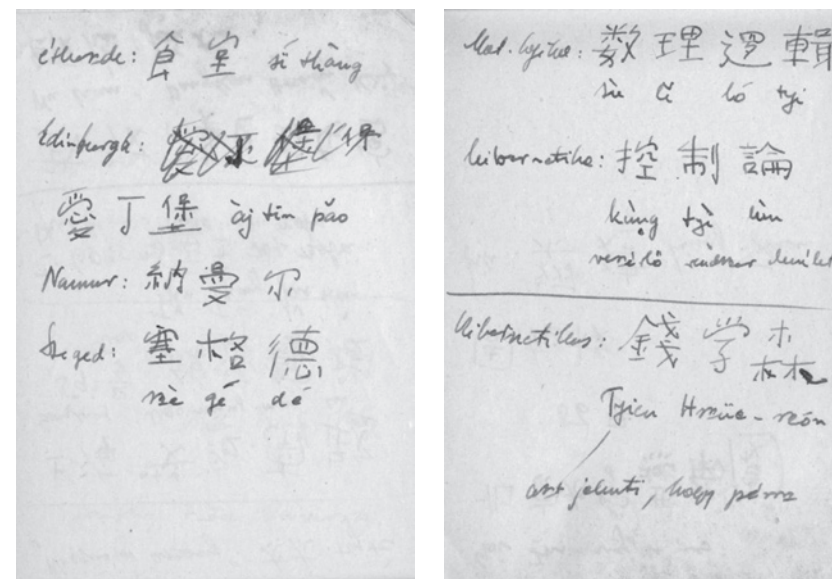 étkezde: 食堂 sí tháng
Edinburgh:
愛丁堡 àj tin pǎo
Namur: 納曼尔
Szeged: 塞格德
szè gé dé
Mat. logika: 数理邏輯
lí ló tyi
kibernetika: 控制論
kùng tyì lùn
vezérlő rendszer
kibernetikus: 錢学森
Tyien Hszüe-szön
azt jelenti, hogy pénz